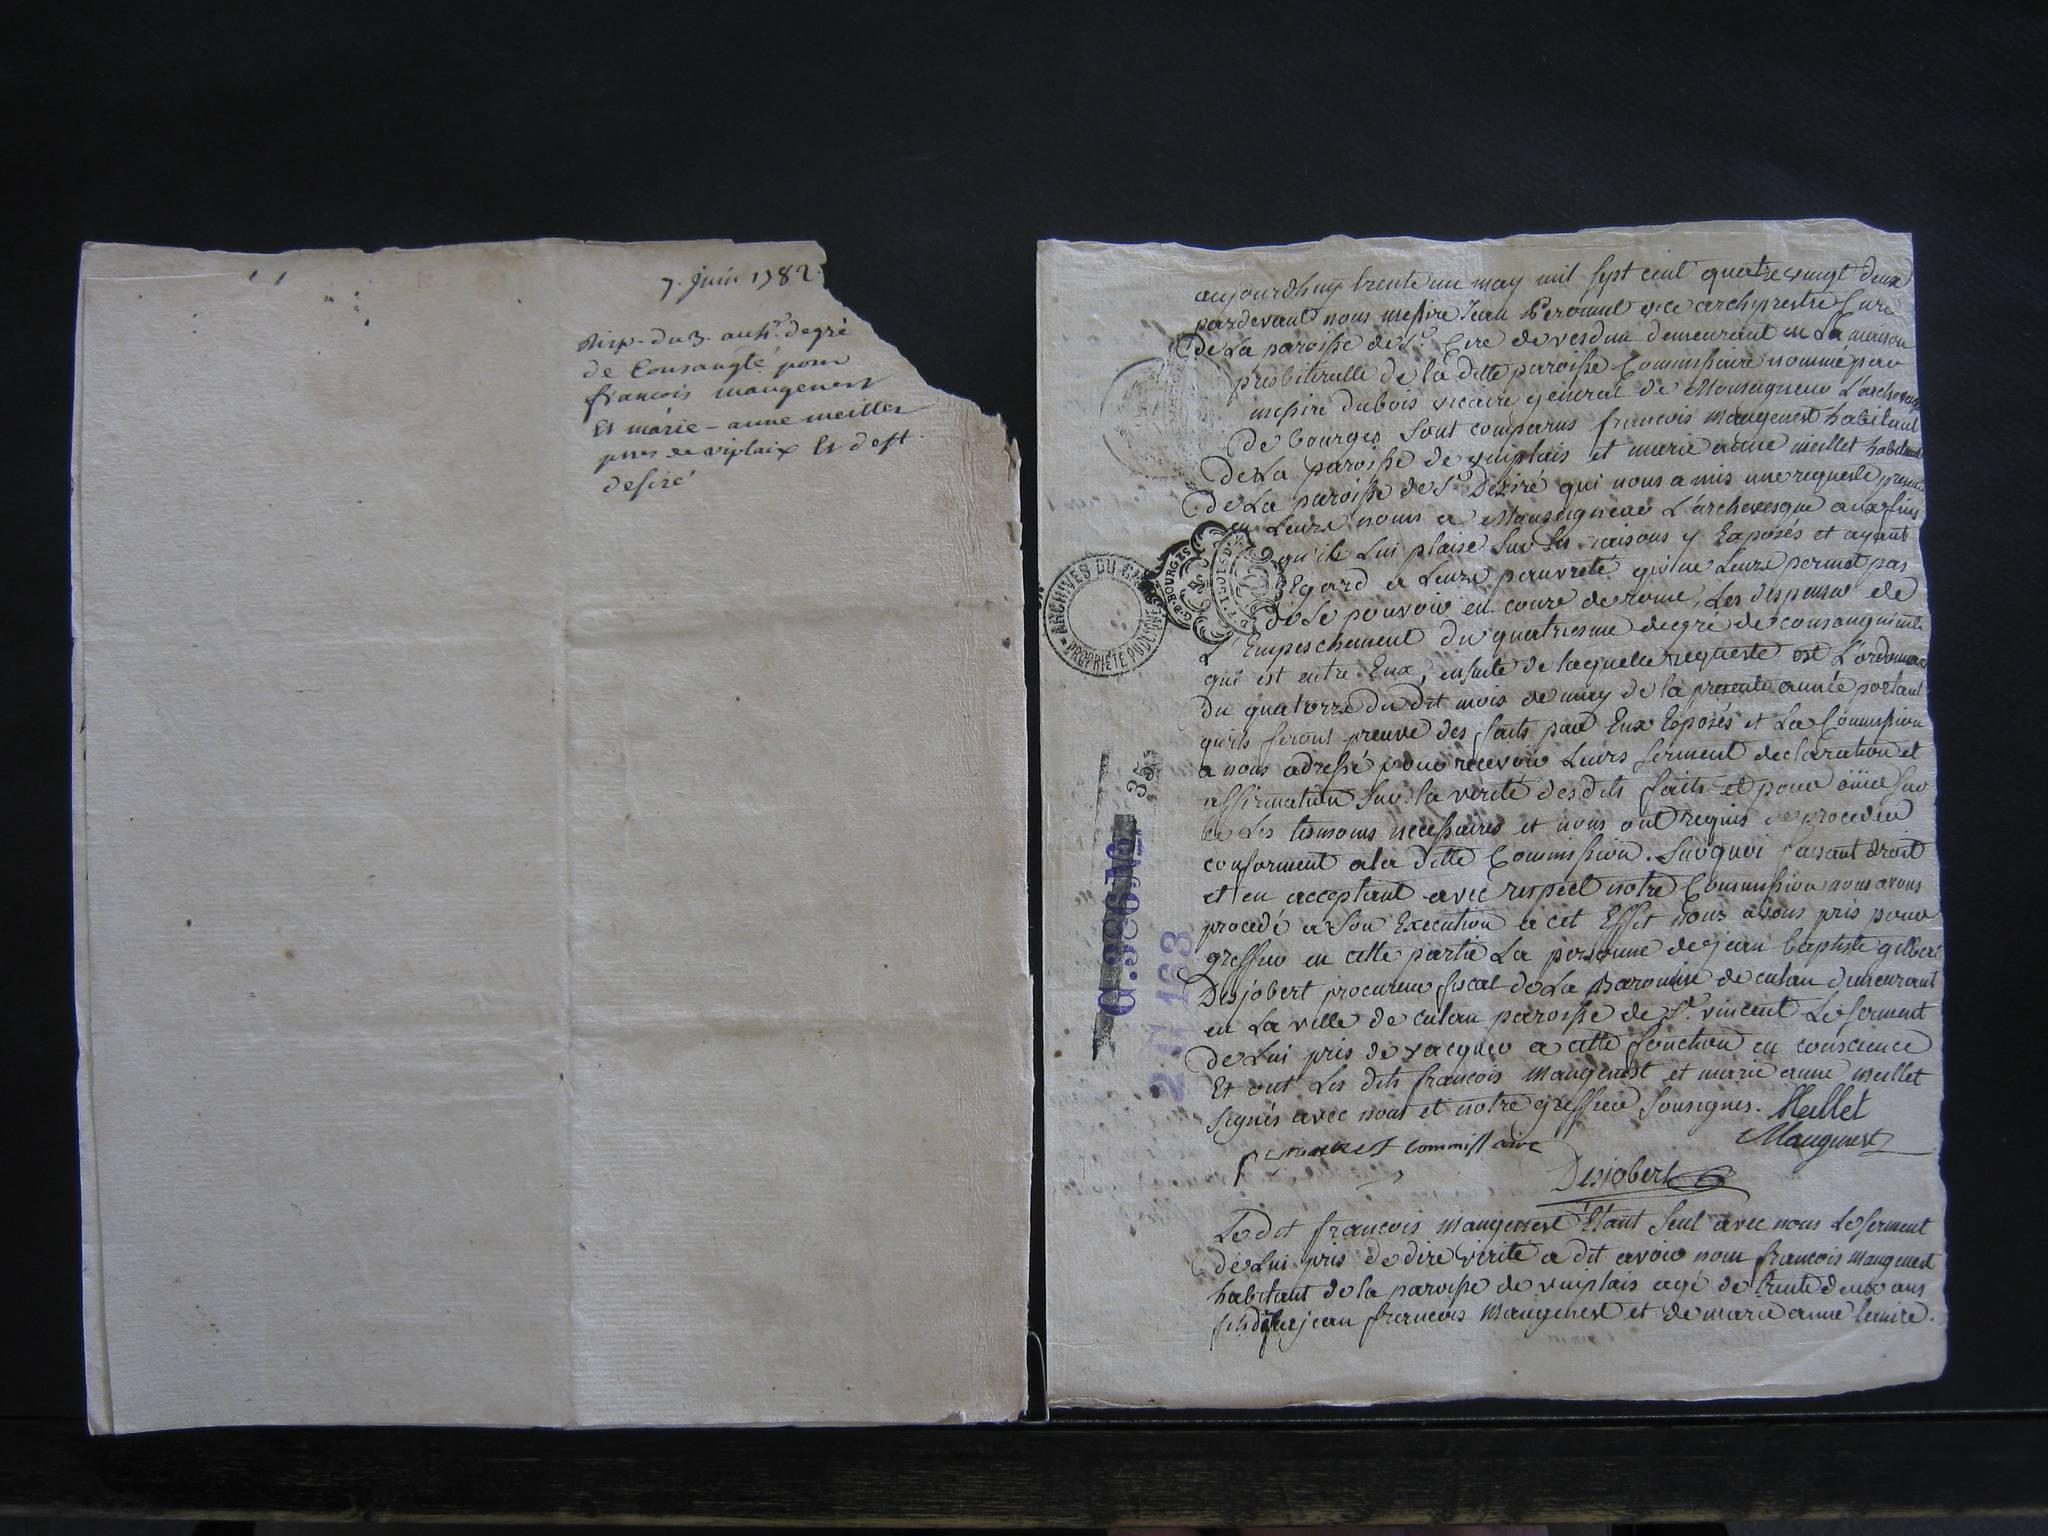 7. Juin 1782.
Disp. du 3. au 4e. degré
de Consangté pour
françois maugenest
Et marie-anne meillet
psses de viplaix Et de st.
desiré
aujourdhuy trente un may mil sept cent quatre vingt deux
pardevant nous messire Jean vice archiprestre Curé
de La paroisse de St. Cire de vesdun demeurant en La maison
presbiteralle de la ditte paroisse Commissaire nommé par
messire dubois vicaire general de Monseigneur L'archevesque
de bourges sont comparus francois Maugenest habitant
de La paroisse de vuiplais et marie anne meillet habitante
de La paroisse de St. Desiré qui nous a mis une requeste
en Leurs noms a Monseigneur L'archevesque aux fins
qu'il Lui plaise sur Les raisons y Exposés et ayant
Egard a Leurs pauvreté qui ne Leurs permet pas
de se pouvoir en cour de rome, Les dispenser de
L'Empeschement du quatriesme degré de consanguinité
qui est entre Eux, ensuite de laquelle requeste est L'ordonnance
du quatorze du dit mois de may de la presente année portant
qu'ils feront preuve des faits par Eux Exposés et La Commission
a nous adressé pour recevoir Leurs serment declaration et
affirmation sur la verité des dits faits et pour
Les tesmoins necessaires et nous ont requis de proceder
conforment a la ditte Commission. Sur quoi faisant droit
et en acceptant avec respect notre Commission nous avons
procedé a son Execution a cet Effet nous avons pris pour
greffier en cette partie La personne de jean baptiste gilbert
Desjobert procureur fiscal de La Baronnie de culan demeurant
en La ville de culan paroisse de St. vincent Le serment
de Lui pris de vacquer a cette fonction en conscience
Et ont Les dits francois Maugenest et marie anne meillet
signés avec nous et notre greffier sousignes. Meillet
commissaire Maugenest
Desjobert
Le dit francois Maugenest Etant seul avec nous Le serment
de Lui pris de dire verité a dit avoir nom francois Maugenest
habitant de la paroisse de vuiplais agé de trente deux ans
fils de jean francois Maugenest et de marie anne
ARCHIVES DU CHER
PROPRIÉTÉ PUBLIQUE
G. BOURGES
35
2 G 163